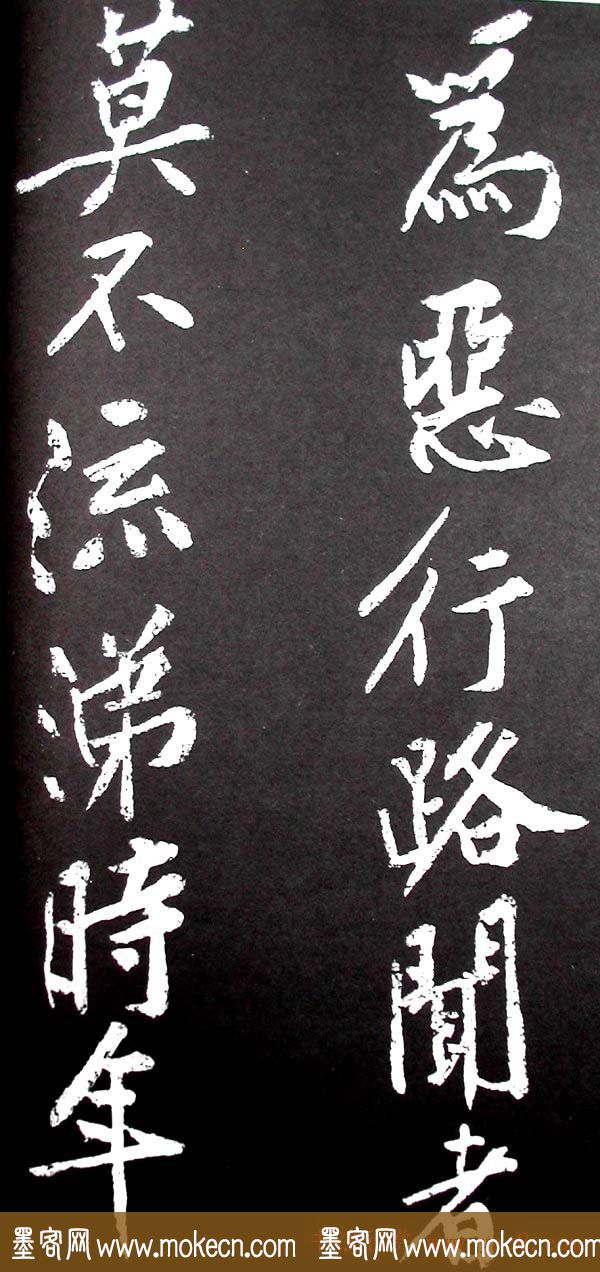 為惡行路聞者
莫不流涕時年
墨客网 www.mokecn.com 墨客网 www.mokecn.com